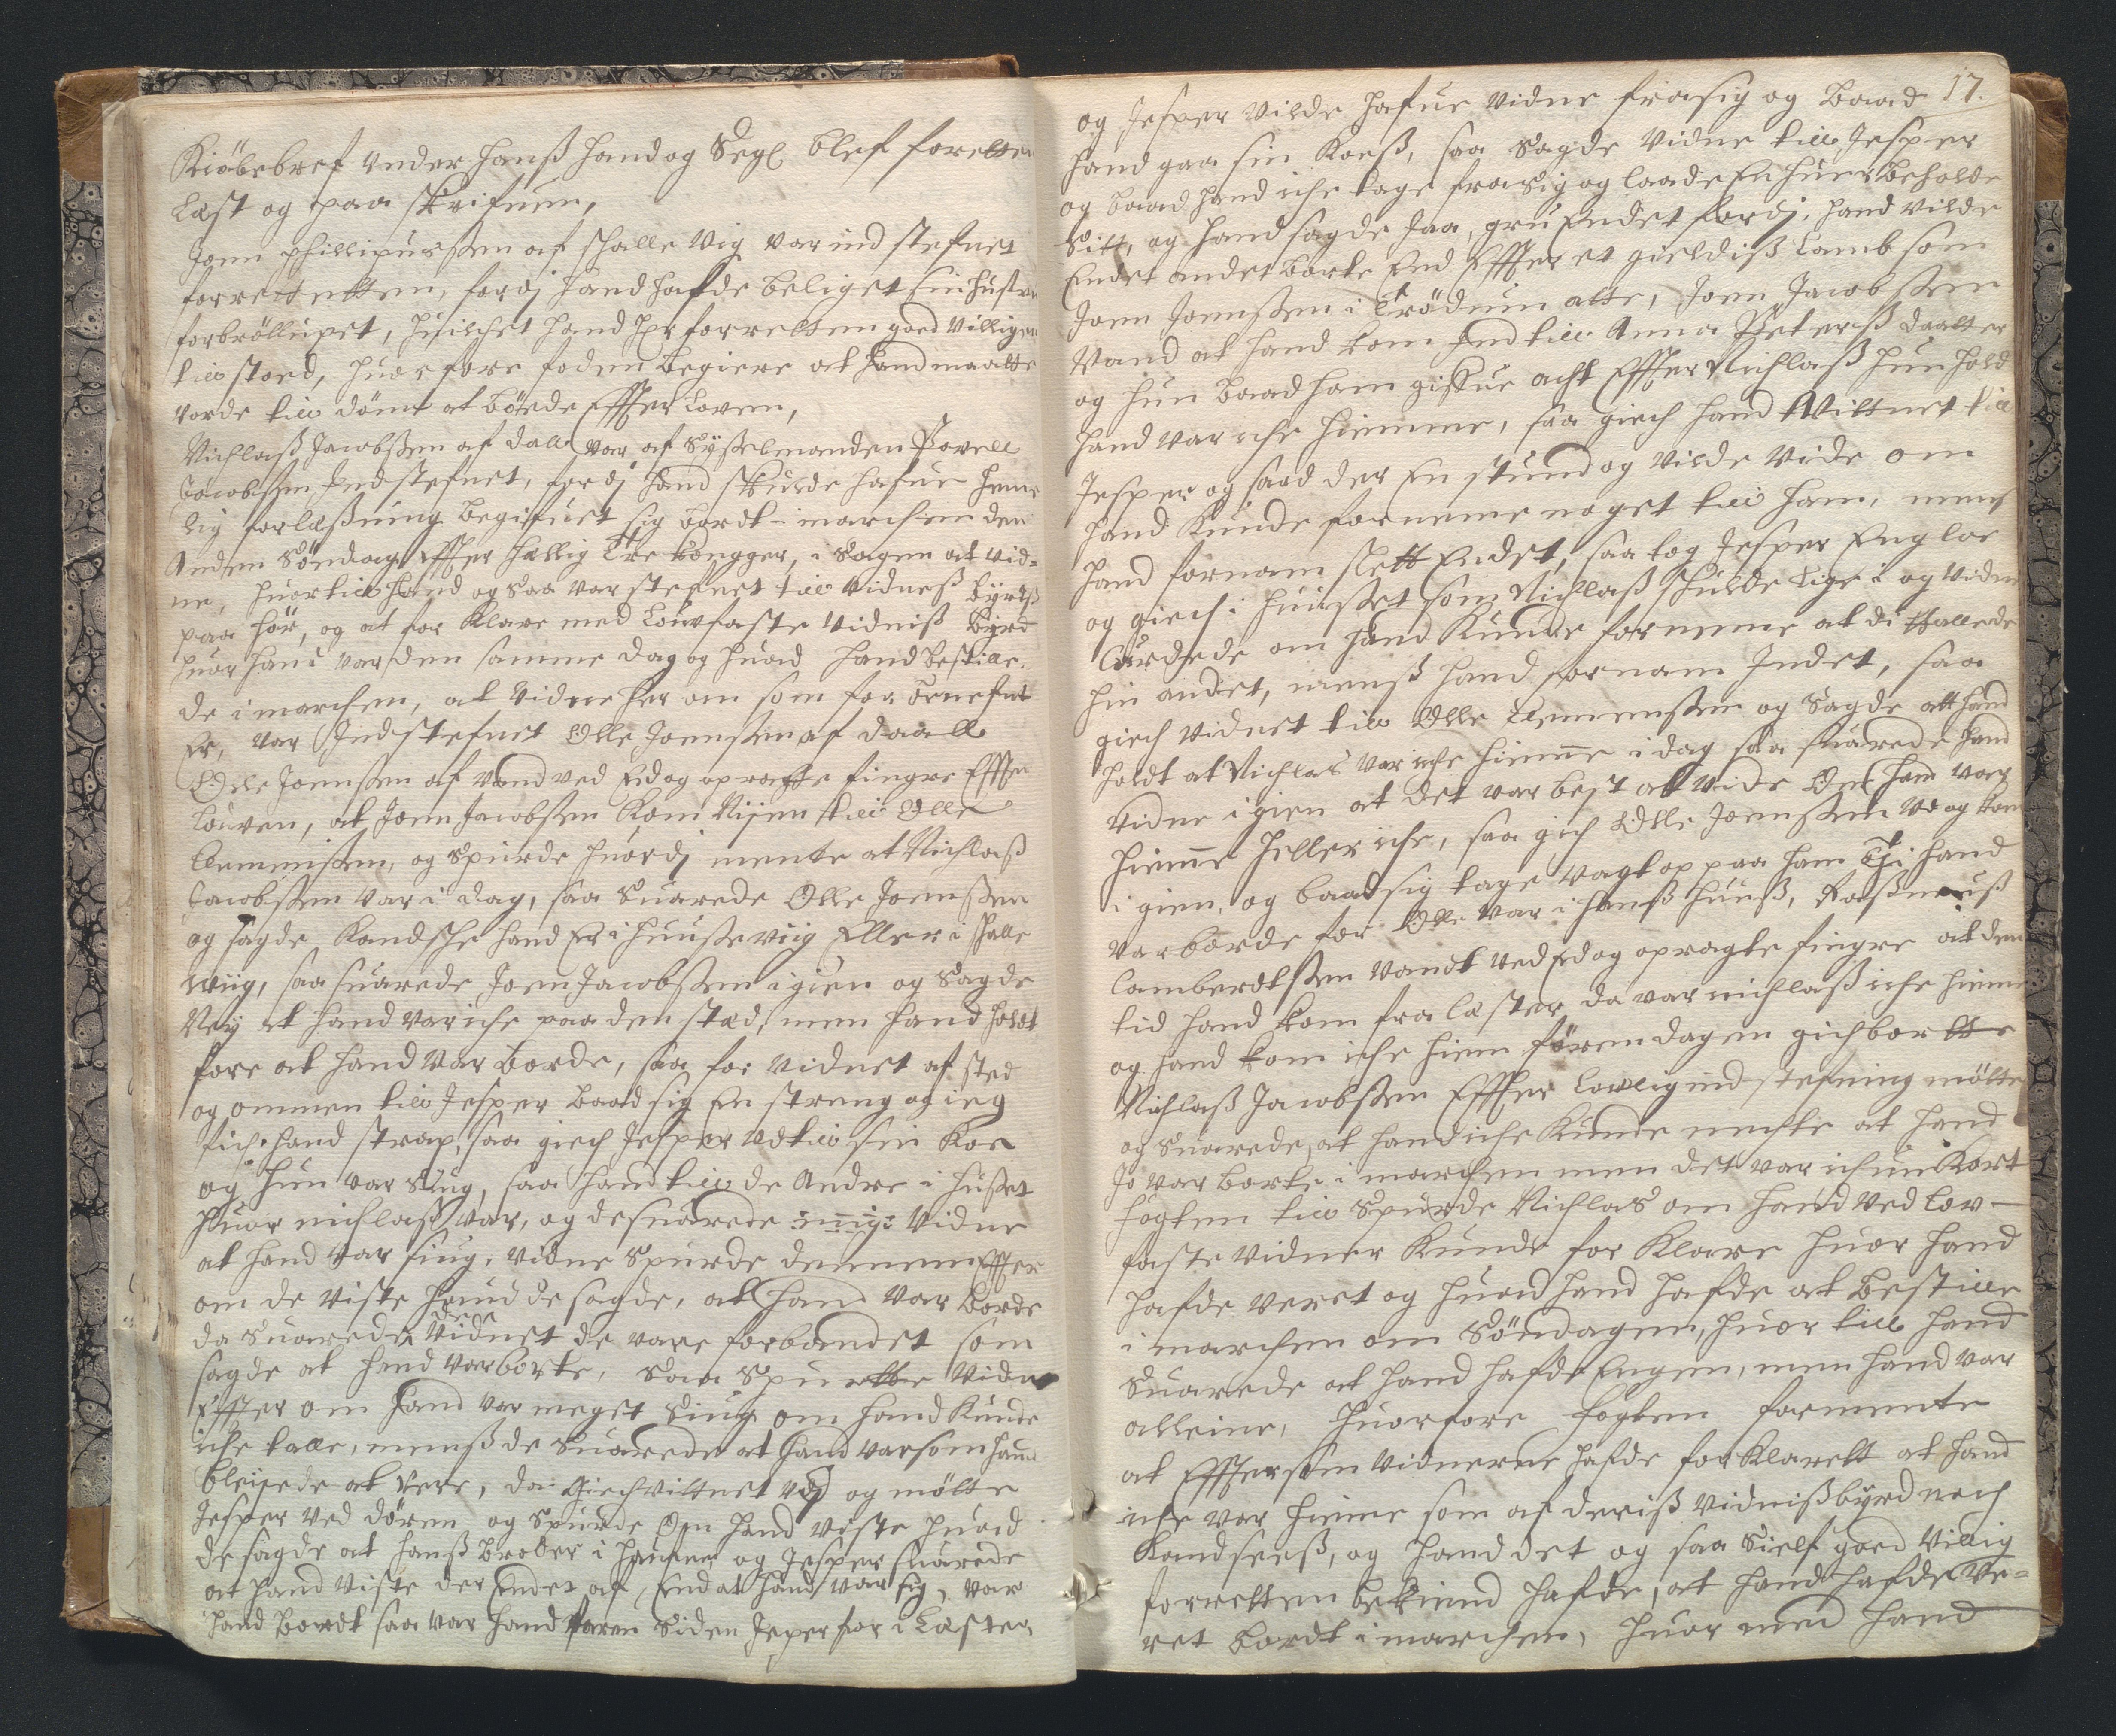 Kiöbebref Under hanß hand og Segl blef foretten
læst og paa skrifuen,
Joen Phillipussen af Schalle Vig var ind stefnet
for rettetten, fordj hand hafde beligget sin hustru
for bröllupet, huilchet hand her for retten goed villigen
till stoed, huorfore fogden begiere at hand maatte
vorde till dömt at böede Effter Loven,
Nichlaß Jacobßen af dall var af Sysselmanden Povell
Jacobßen Ind stefnet, fordj hand skulde hafue heme
lig forlæßning begifuet sig bordt i marchen den
Anden Söndag Effter hellig Tre Kongger, i Sagen at vid-
ne, huor till hand og Saa var stefnet till vidneß byrdß
paa hör, og at for Klare med Louvfaste vidniß byrd
huor han i var den samme dag og huad hand bestille-
de i marchen, at vidne her om som for örnefnt
Er, var Indstefnet Olle Joenßen af Daall
Olle Joenßen af vand ved Eed og oprachte fingre Effter
Louven, at Joen Jacobßen kom Nijen till Olle
Clemmensen, og Spurde huordj mente at Nichlaß
Jacobßen var i dag, saa Suarede Olle Joenßen
og sagde kandsche hand Er i Huußevig Eller i Schalle
wiig, saa suarede Joen Jacobßen igien og Sagde
Nej at hand var iche paa den stæd, men hand holdt
fore at hand var borde, saa for vidnet af sted
og ommen till Jesper baad sig En streng og ieg
fich hand strax, saa giech Jesper Ud till sin Koe
og hun var Siug, saa hand till de Andre i huset
huor nichlaß var, og de suarede vidne
at hand var siug, vidne Spurde dennem Effter
om de viste huad de sagde, at hand var borde
da Suarede Vidnet de vare forbandet som
sagde at hand var borte, Saa Spurtte Vidne
Effter om hand var meget Siug om hand kunde
iche talle, menß de Suarede at hand var som hand
pleijede at vere, da giech vittnet Ud og mötte
Jesper ved dören og Spurde Om hand viste huad
de sagde at hanß broder i hafuer og Jesper suarede
at hand viste der Endet af, End at hand var sig, var
hand bordt saa var hand faren Siden Jeper for i Læster
17.
og Jesper vilde hafue vidne fra sig og baad
hand gaa sin Koeß, saa Sagde Vidne till Jesper
og baad hand iche tage fra Sig og laade En huer beholde
Sitt, og hand sagde Jaa, fordj, hand vilde
Endet andet borte End Effter et gieldiß Lamb som
Joen Joenßen i Trödum atte, Joen Jacobßen
Vand at hand kom Ind till Anna Peterß daatter
og hun baad ham gifue acht Effter Nichlaß hun hold
hand var iche hiemme, saa giech hand Vittnet till
Jesper og saad der En stund og vilde vide om
hand kunde fornemme noget till ham, menß
hand fornam slett Endet, saa tog Jesper En gloe
og giech i huuset som Nichlaß schulde lige i og vidne
lurdede om hand kunde fornemme at di tallede
hin andet, menß hand fornam Indet, saa
giech vidnet till Olle Clemmensen og Sagde att hand
holdt at Nichlas var iche hiemme i dag saa suarede hand
Vidne igien at det var best att vide Om hand var
hiemme heller iche, saa gich Olle Joensen Ud og kom
igien, og baad sig tage vagt op paa ham thj hand
var borde for Olle var i hanß huuß, Raßmuß
Lamberdtßen vandt ved Eed og opragte fingre at den
tid hand kom fra læster da var nichlaß iche hieme
og hand kom iche hiem förend dagen gich bortte
Nichlaß Jacobßen Effter Lovlig ind stefning mötte
og Suarede, at hand iche kunde nechte at hand
Jo var borte i marchen men det var ichun Kort
fogten till Spurde Nichlas om hand ved Lov-
faste vidner kunde for Klare huor hand
hafde veret og huad hand hafde at bestille
i marchen om Söndagen, huor till hand
Suarede at hand hafde Engen, men hand var
alleine, huorfore fogten formente
at Efftersom vidnerne hafde forklarett at hand
iche var hieme som af deriß vidnißbyrd noch
kand seeß, og hand det og saa Sielf goed Villig
for retten bekiend hafde, at hand hafde ve-
ret bordt i marchen, huor med hand